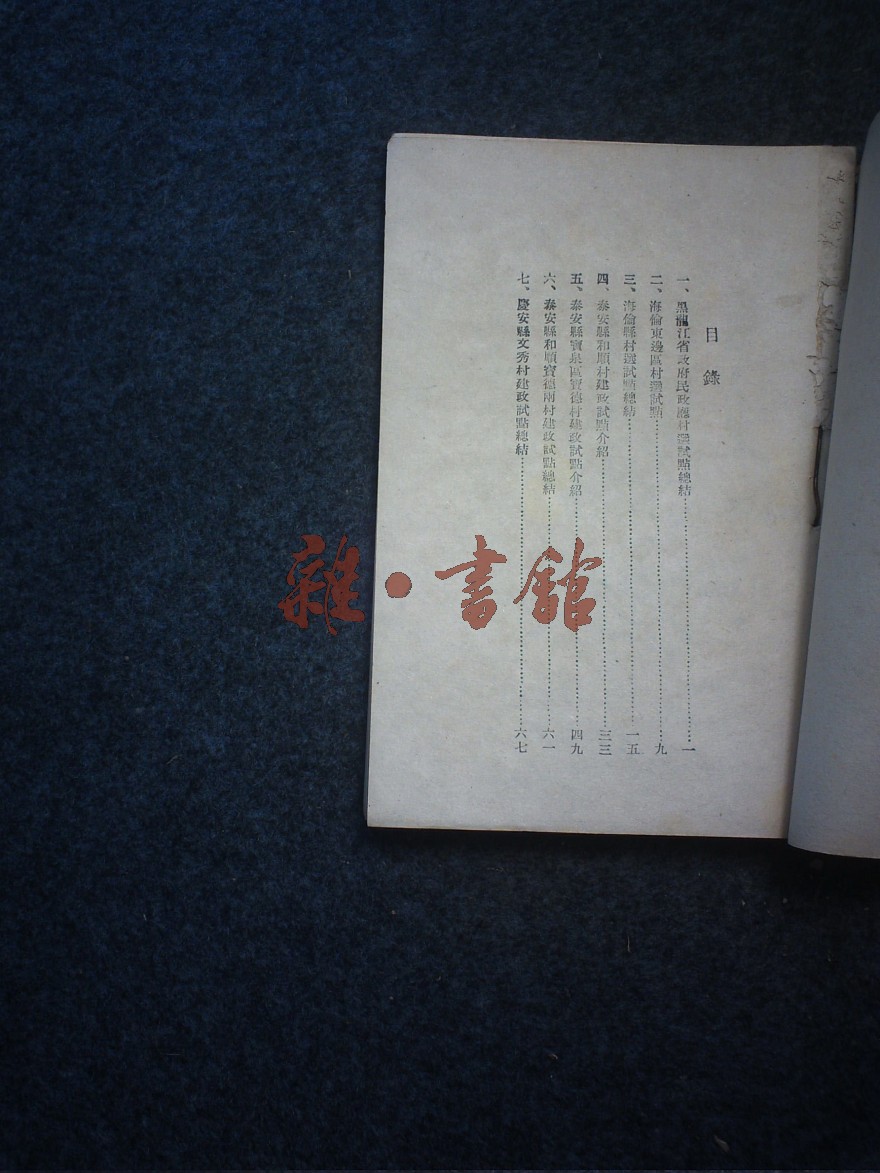 目錄
一、黑龍江省政府民政廳村選試點總結……一
二、海倫東邊區村選試點……九
三、海倫縣村選試點總結……一五
四、泰安縣和順村建政試點介紹……三三
五、泰安縣寶泉區寶德村建政試點介紹……四九
六、泰安縣和順寶德兩村建政試點總結……六一
七、慶安縣文秀村建政試點總結……六七
雜·書館